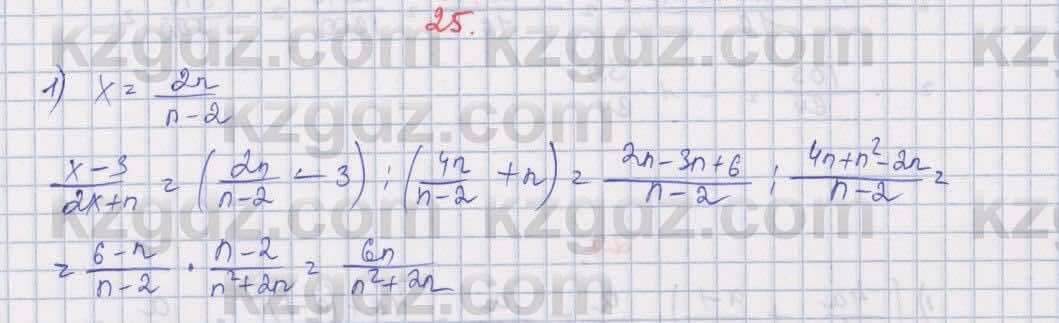 25.
1) x = 2n/(n-2)
(x-3)/(2x+n) = (2n/(n-2) - 3) : (4n/(n-2) + n) = (2n-3n+6)/(n-2) : (4n+n²-2n)/(n-2) =
= (6-n)/(n-2) · (n-2)/(n²+2n) = 6n/(n²+2n)
kzgdz.com
kzgdz.com
kzgdz.com
kzgdz.com